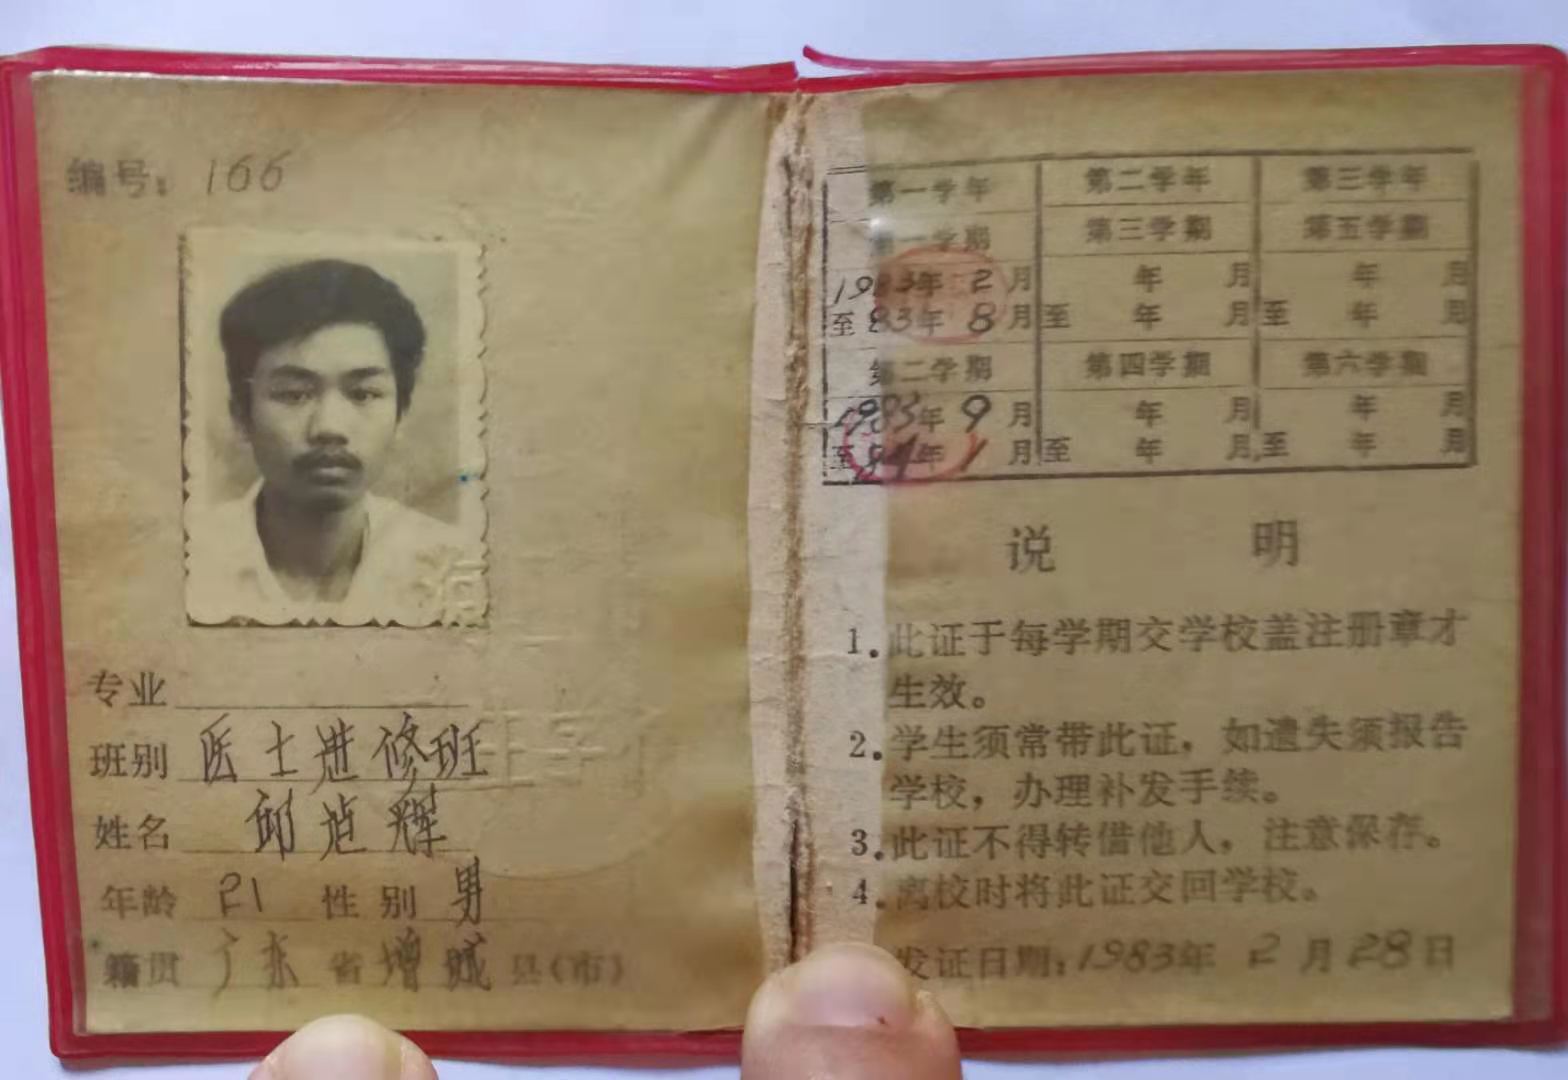 编号：166
专业
班别 医士进修班
姓名 辉
年龄 21 性别 男
籍贯 广东省增城县（市）
第一学年 第二学年 第三学年
第一学期 第三学期 第五学期
1983年2月 年 月 年 月
至83年8月 至 年 月 至 年 月
第二学期 第四学期 第六学期
1983年9月 年 月 年 月
至84年1月 至 年 月 至 年 月
说明
1.此证于每学期交学校盖注册章才
生效。
2.学生须常带此证，如遗失须报告
学校，办理补发手续。
3.此证不得转借他人，注意保存。
4.离校时将此证交回学校。
发证日期：1983年2月28日